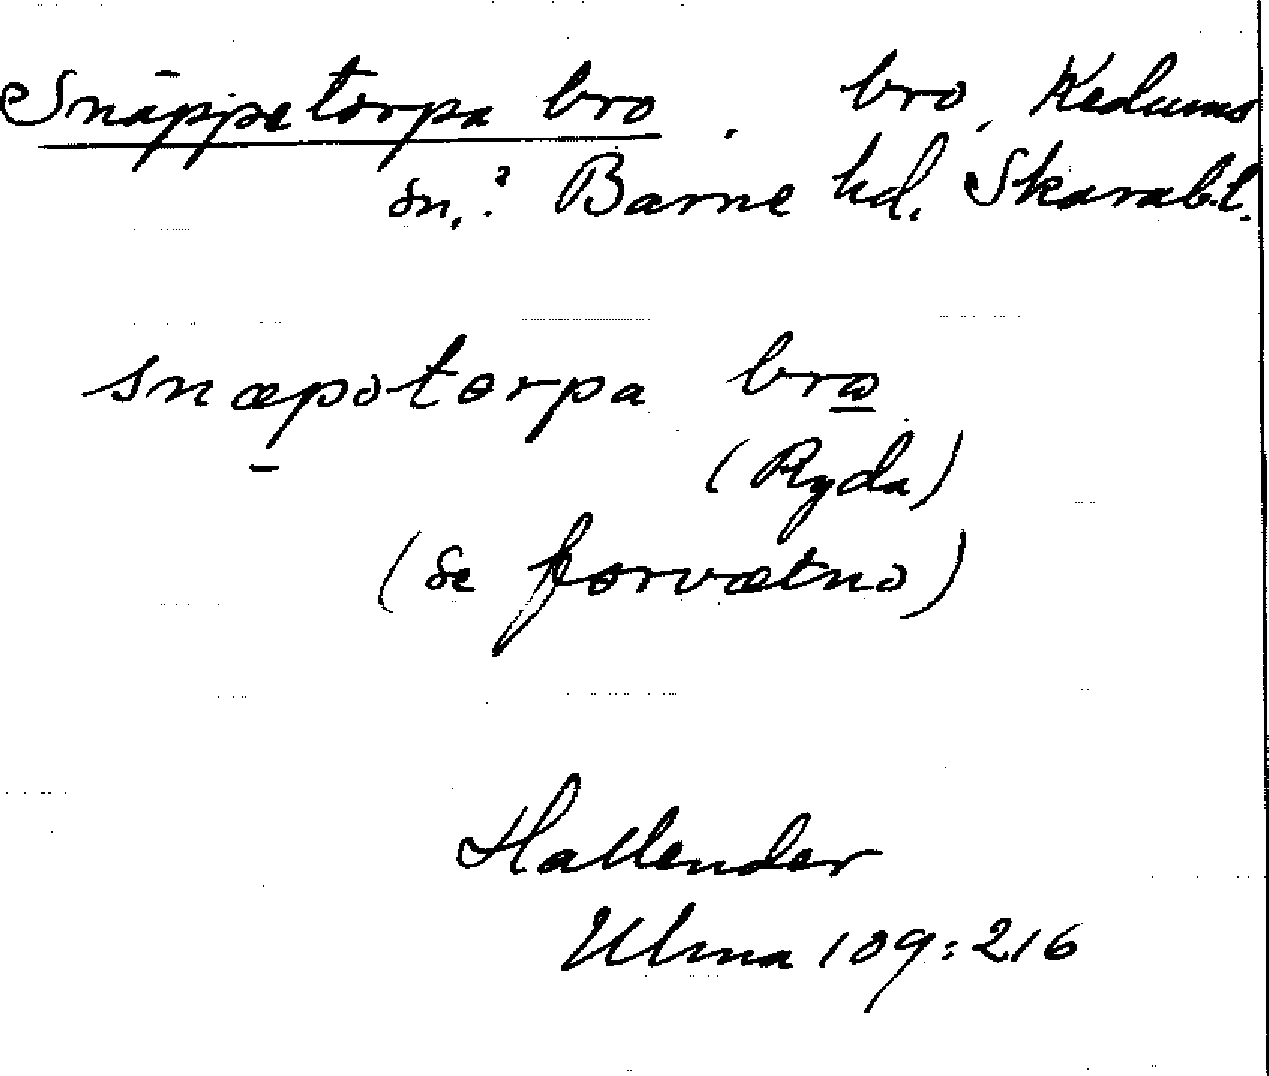 Snäppetorpa bro. bro, Kedums
sn.? Barne hd. Skarab.l.
snæpɔtɵrpa bro
(Ryda)
(se fɵrvætnɔ)
Hallender
Ulma 109:216